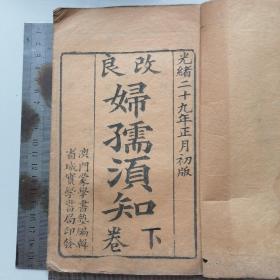 光緒二十九年正月初版
改良
婦孺湏知
卷下
澳門蒙學書塾編輯
省城實學書局印發